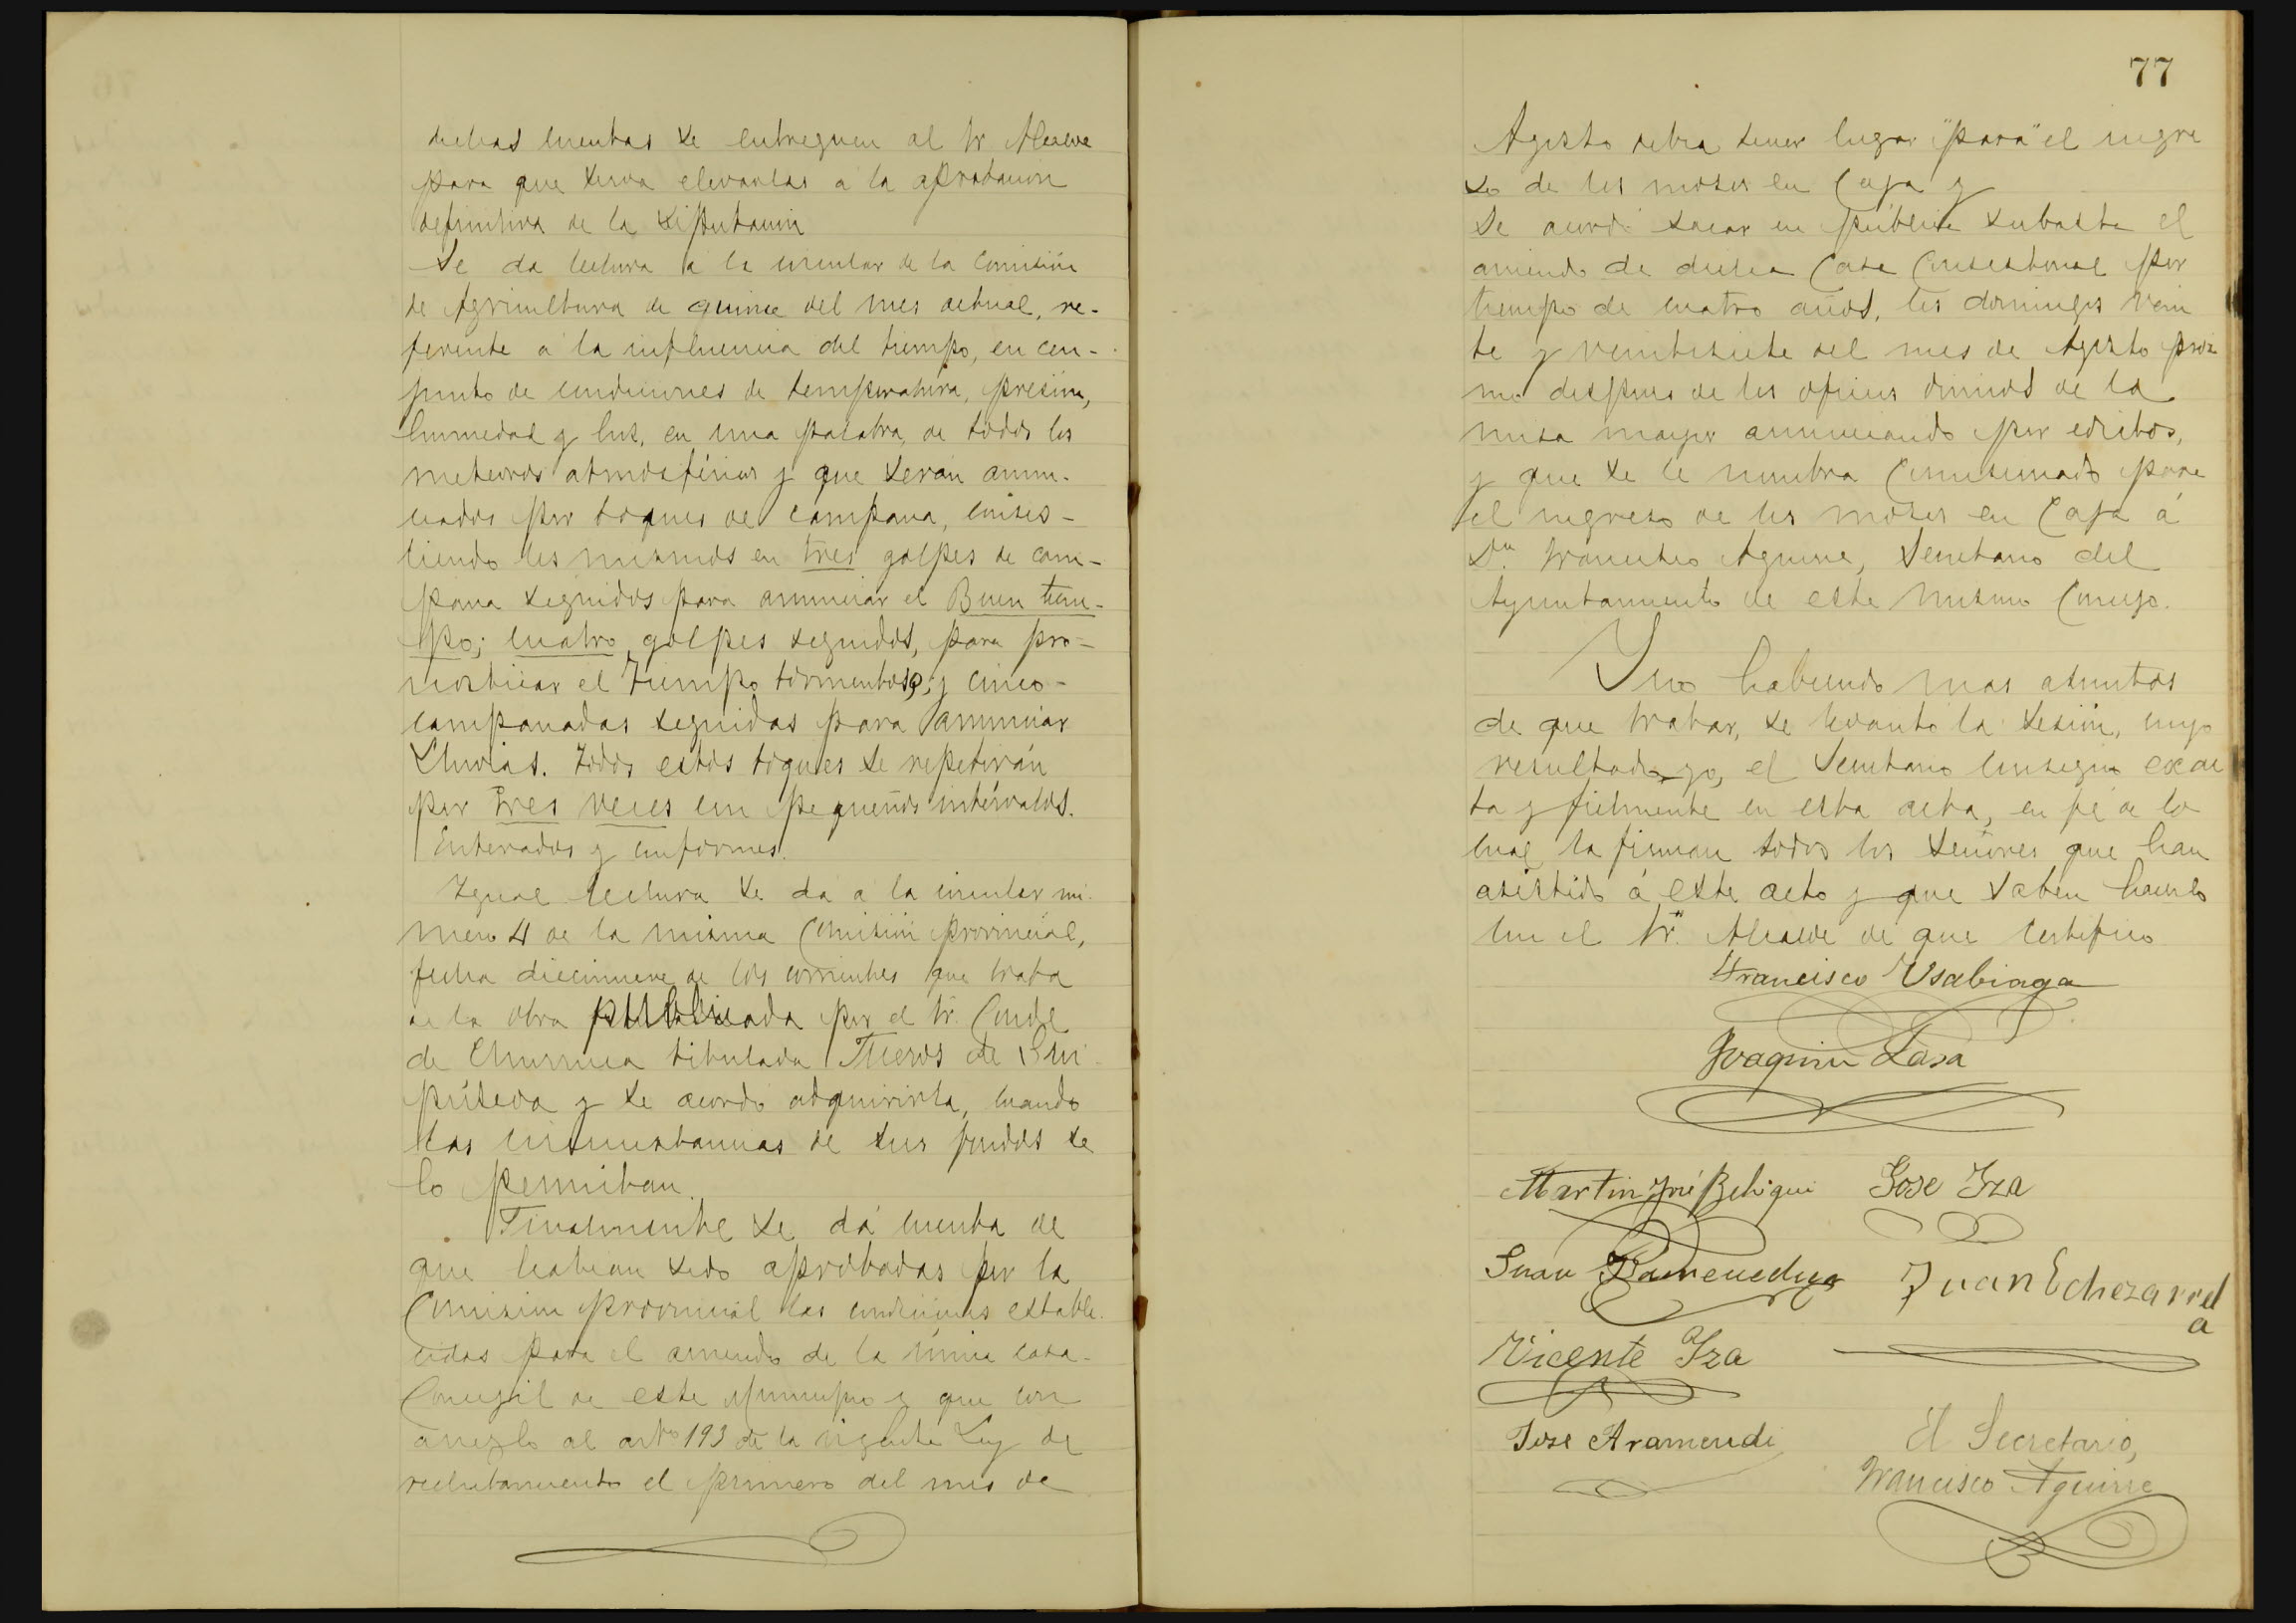 dichas cuentas se entreguen al Sr Alcalde
para que sirva elevarlas a la aprobación
definitiva de la Diputación
Se da lectura a la circular de la Comisión
de Agricultura de quince del mes actual, re-
ferente a la influencia del tiempo, en con-
junto de condiciones de temperatura, presión,
humedad y luz, en una palabra, de todos los
meteoros atmosféricos y que serán anun-
ciados por toques de campana, consis-
tiendo los mismos en tres golpes de cam-
pana seguidos para anunciar el Buen tiem-
po; cuatro golpes seguidos, para pro-
nosticar el Tiempo tormentoso; y cinco-
campanadas seguidas para anunciar
Lluvias. Todos estos toques se repetirán
por tres veces con pequeños intérvalos.
Enterados y conformes.
Igual lectura se da a la circular nú-
mero 4 de la misma Comisión provincial,
fecha diecinueve de los corrientes que trata
de la obra publicada por el Sr. Conde
de Churruca titulada Fueros de Gui
púzcoa y se acordó adquirirla, cuando
las circunstancias de sus fondos se
lo permitan.
Finalmente se dá cuenta de
que habian sido aprobadas por la
Comisión provincial las condiciones estable-
cidas para el arriendo de la única casa-
Concejil de este Municipio y que con
arreglo al artº 193 de la vigente Ley de
reclutamiento el primero del mes de
77
Agosto debia tener lugar "para" el ingre
so de los mozos en Caja y
Se acordó sacar en pública subasta el
arriendo de dicha Casa Consistorial por
tiempo de cuatro años, los domingos vein
te y veintisiete del mes de Agosto próx
mo despues de los oficios divinos de la
misa mayor anunciando por edictos,
y que se le nombra Comisionado para
el ingreso de los mozos en Caja á
Dn. Francisco Aguirre, Secretario del
Ayuntamiento de este mismo Concejo.
Y no habiendo mas asuntos
de que tratar, se levantó la sesión, cuyo
resultado yo, el Secretario consigno exac
ta y fielmente en esta acta, en fé de lo
cual la firman todos los señores que han
asistido á este acto y que saben hacerlo
con el Sr. Alcalde de que certifico
Francisco Usabiaga
Joaquin Lasa
Martin José Behigui Jose Iza
Juan Juan Echezarret
a
Vicente Iza
Jose Aramendi El Secretario,
Francisco Aguirre